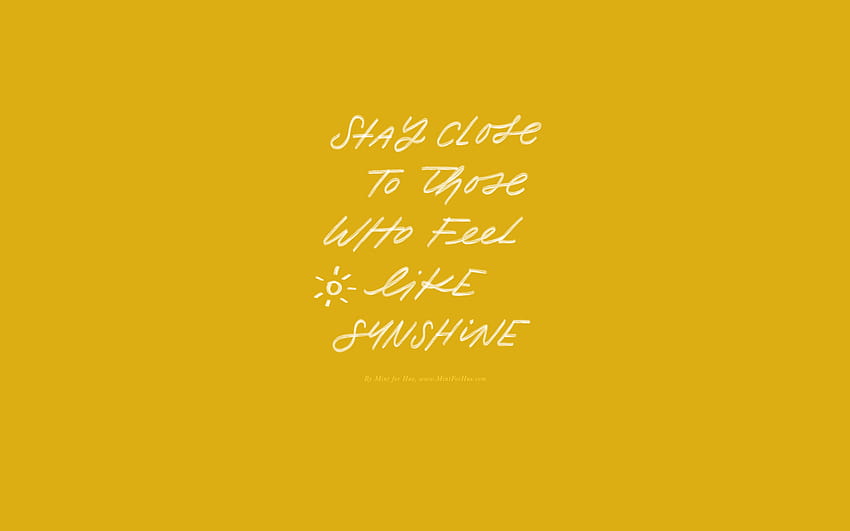 STAY CLOSE
TO THOSE
WHO FEEL
LIKE
SUNSHINE
By Mint for Hue, www.MintForHue.com